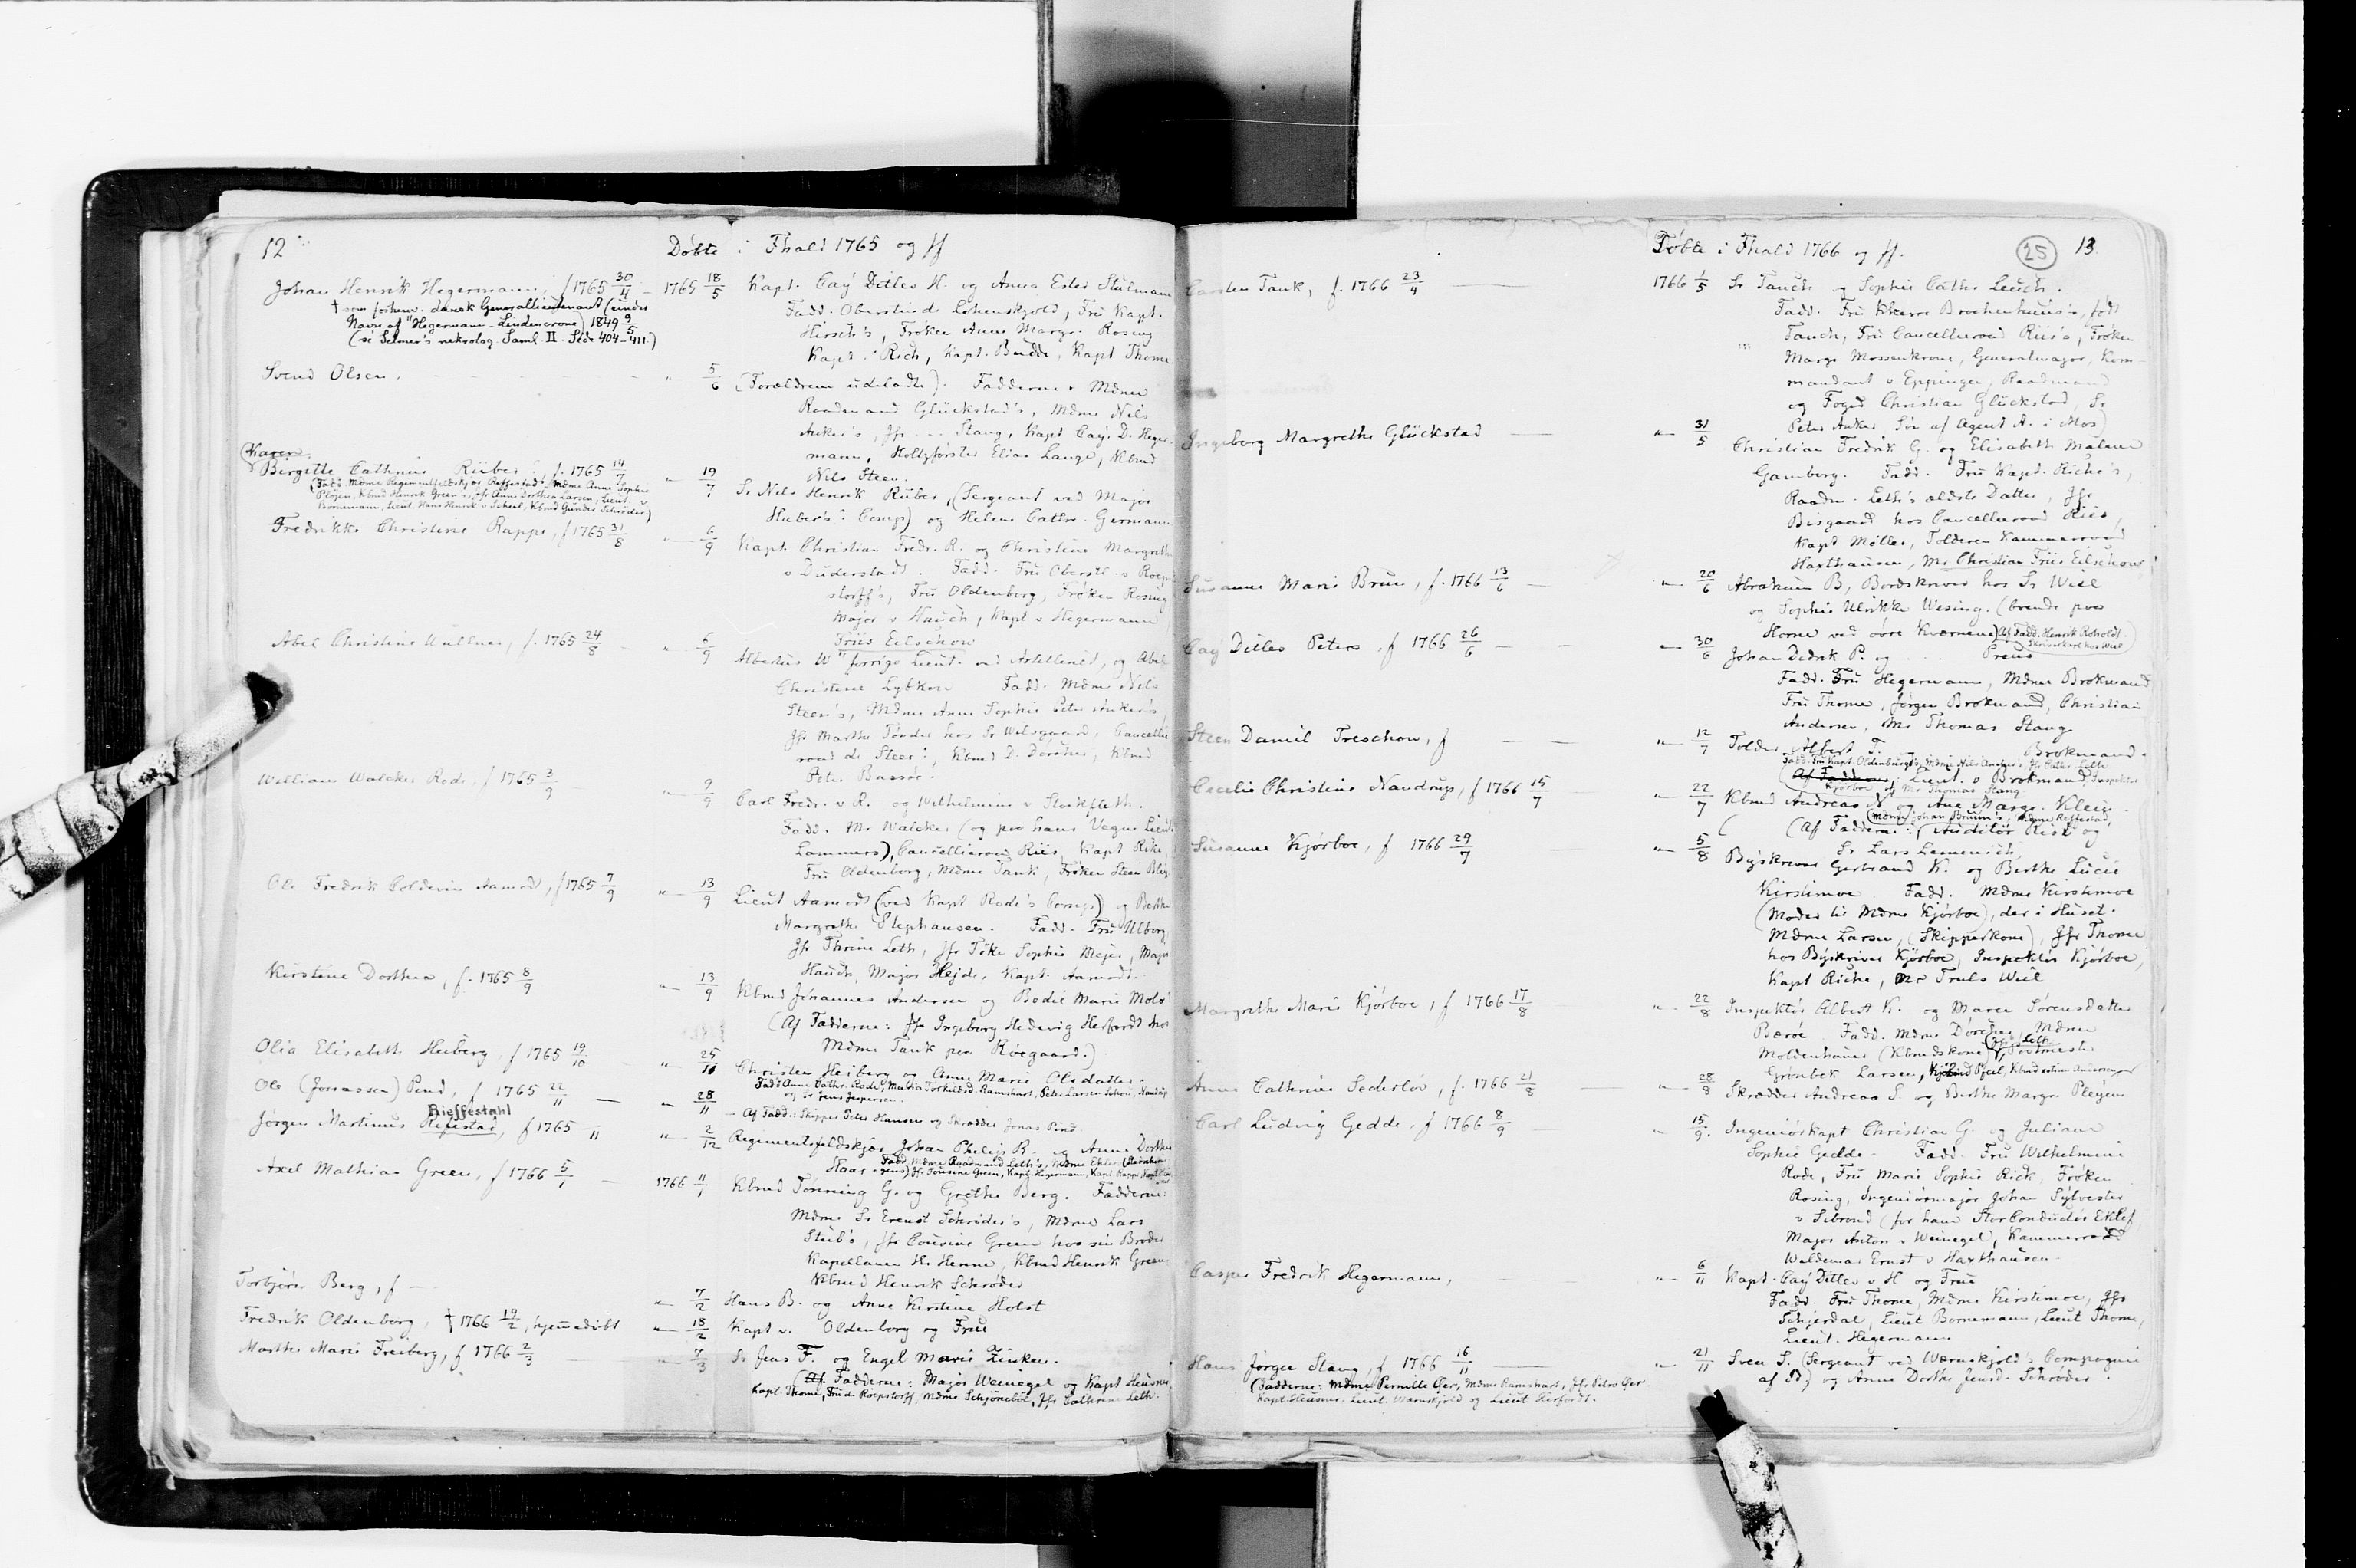 12
Døbte i Fhald 1765 og ff
Johan Henrik Hegermann, f 1765 30/4 – 1765 18/5 Kapt. Caÿ Ditlev H. og Anna Ester Stulmann
† som forhenv. dansk Generallieutenant (under
Navn af "Hegermann-Lindencrone) 1849 9/5
(se Selmer's nekrolog. Saml. II. Side 404–411.)
Fadd. Oberstinde Løhenskjold, Fru Kapt.
Hirsch's, Frøken Anne Margr. Rosing
Kapt. Rich, Kapt. Budde, Kapt Thome
Svend Olsen. " 5/6 (Forældrene udeladte). Fadderne: Mdme
Raadmand Glückstad's, Mdme Nils
Anker's, Jfr ... Stang, Kapt Caÿ D. Heger-
mann, Holtzførster Elias Lange, Kbmd
Nils Steen.
(Karen)
Birgitte Cathrine Rüber, f. 1765 14/7 " 19/7 Sr Nils Henrik Rüber, (Sergeant ved Major
(Fadd. Mdme Regimentfeldskjær Reffestad's, Mdme Anne Sophie
Pløjen, Kbmd Henrik Green's, Jfr Anne Dorthea Larsen, Lieut. v
Bornemann, Lieut. Hans Henrik v Scheel, Kbmd Gunder Schrøder)
Huber's? Comp) og Helene Cathr. Germann
Fredrikke Christine Rappe, f 1765 31/8 " 6/9 Kapt. Christian Fredr. R. og Christine Margrethe
v Duderstadt. Fadd. Fru Oberstl. v Roep-
storff's, Fru Oldenborg, Frøken Rosing
Major v Hauch, Kapt v Hegermann
Friis Eilschow
Abel Christine Wullner, f. 1765 24/8 " 6/9 Albertus W forrige Lieut. ved Artelleriet, og Abel
Christine Lybkow Fadd. Mdme Nils
Steen's, Mdme Anne Sophie Peter Anker's
Jfr Marthe Tøndel hos Sr Wilsgaard, Cancellie
raad de Steer, Kbmd D. Dorcher, Kbmd
Peter Bassøe.
William Walcker Rode, f 1765 3/9 " 9/9 Carl Fredr. v R. og Wilhelmine v Stockfleth.
Fadd. Mr Walcker (og paa hans Vegne Lieut.
Lammers), Cancellieraad Riis, Kapt Riche,
Fru Oldenborg, Mdme Tank, Frøken Steen Blix
Ole Fredrik Coldevin Aamodt, f 1765 7/9 " 13/9 Lieut Aamodt (ved Kapt Rode's Comp) og Berthe
Margrethe Stephansen. Fadd. Fru Ulborg,
Jfr Thrine Leth, Jfr Tøke Sophie Mejer, Major
Hauch, Major Hejde, Kapt. Aamodt.
Kirstine Dorthea, f. 1765 8/9 " 13/9 Kbmd Johannes Andersen og Bodil Marie Molø
(Af Fadderne: Jfr Ingeborg Hedevig Herfordt hos
Mdme Tank paa Røegaard.)
Olia Elisabeth Heiberg, f 1765 19/10 " 25/10 Christen Heiberg og Anne Marie Olsdatter.
Fadd Anne Cathr. Rode, Maria Torkildsd. Ramshart, Peter Larsen Schou,
og Sr Jens Jespersen.
Ole (Jonassen) Pind, f 1765 22/11 — " 28/11 – Af Fadd.: Skipper Peter Hansen og Skrædder Jonas Pind.
Rieffestahl
Jørgen Martinus Refestad, f 1765 11 " 2/12 Regimentsfeldskjær Johan Philip R. og Anne Dorthea
Haas Fadd. Mdme Raadmand Leth's, Mdme Ehler,
Jfr Tønsine Green, Kapt Hegermann, Kapt. Rappe,
Axel Mathias Green, f 1766 5/1 — 1766 11/1 Kbmd Tønning G. og Grethe Berg. Fadderne:
Mdme Sr Ernst Schrøder's, Mdme Lars
Stub's, Jfr Tønsine Green hos sin Broder
Kapellanen Hr Henne, Kbmd Henrik Green,
Kbmd Henrik Schrøder
Torbjørn Berg, f — " 7/2 Hans B. og Anne Kirstine Holst
Fredrik Oldenborg, † 1766 19/2, hjemmedøbt " 18/2 Kapt v. Oldenborg og Frue
Marthe Marie Freiberg, f 1766 2/3 " 7/3 Sr Jens F. og Engel Marie Zinken.
(Af Fadderne: Major Weinegel og Kapt Heusner,
Kapt. Thome, Fru de Roepstorff, Mdme Schjønebøl, Jfr Cathrine Leth.
Døbte i Fhald 1766 og ff. 25 13
Carsten Tank, f. 1766 23/4 — 1766 1/5 Sr Tanch og Sophie Cathr. Leuch.
Fadd. Fru Brochenhuus's, født
Tanch, Fru Cancelleraad Riis's, Frøken
Margr Mossenkrone, Generalmajor, Kom-
mandant v Eppinger, Raadmand
og Foged Christian Glückstad, Sr
Peter Anker Søn af Agent A. i Mos)
Ingeborg Margrethe Glückstad — " 31/5 Christian Fredrik G. og Elisabeth Malene
Gamborg. Fadd. Fru Kapt. Riche's,
Raadm. Leth's ældste Datter, Jfr
Bisgaard hos Cancelleraad Riis,
Kapt Møller, Tolderen Kammerraad
Haxthausen, Mr Christian Friis Eilschow
Susanne Marie Brun, f. 1766 13/6 — " 20/6 Abraham B, Bordskriver hos Sr Wiel
og Sophie Ulrikke Wesing. (boende paa
Horne ved øvre Kværnene) (Af Fadd. Henrik Roholdt
Skriverkarl hos Wiel)
Caÿ Ditlev Peters, f 1766 26/6 — " 30/6 Johan Didrik P. og ... Preus
Fadd. Fru Hegermann, Mdme Brokmand
Fru Thome, Jørgen Brokmand, Christian
Andersen, Mr Thomas Stang
Steen Daniel Treschow, f — " 12/7 Tolder Albert T. og Brokmand.
Fadd. Fru Kapt. Oldenburg's, Mdme Nils Anker's, Jfr Cathr. Leth
(Af Fadderne: Lieut. v Brokmand, Inspektør
Kjørboe og Mr Thomas Stang
Cecilie Christine Naudrup, f 1766 15/7 " 22/7 Kbmd Andreas N og Ane Margr. Klein.
(Mdme Johan Bruun's, Mdme Reffestad,
(Af Fadderne: Auditør Rist og
Sr Lars Lemmich
Susanne Kjørboe, f 1766 29/7 — " 5/8 Byskriver Gerbrand K. og Birthe Lucie
Kirstimoe. Fadd. Mdme Kirstimoe
(Moder til Mdme Kjørboe), der i Huset.
Mdme Larsen, (Skipperkone), Jfr Thome
hos Byskriver Kjørboe, Inspektør Kjørboe,
Kapt Riche, Mr Truls Wiel
Margrethe Marie Kjørboe, f 1766 17/8 " 22/8 Inspektør Albert K. og Maren Sørensdatter
Bærøe. Fadd. Mdme Dorcher, Mdme
Moldenhauer (Kbmdskone), (Jfr Leth) Postmester
Grønbek Larsen, Kbmd Pæl,
Anne Cathrine Sederløv, f. 1766 21/8 — " 28/8 Skrædder Andreas S. og Birthe Margr Pleyem
Carl Ludvig Gedde, f 1766 8/9 — " 15/9. Ingeniørkapt Christian G. og Juliane
Sophie Gedde. Fadd. Fru Wilhelmine
Rode, Fru Marie Sophie Rick, Frøken
Rosing, Ingeniørmajor Johan Sylvester
v Sebrond (for ham Stor Conduktør Eklef
Major Anton v Weinegel, Kammerraad
Waldemar Ernst v Haxthausen.
Casper Fredrik Hegermann, — " 6/11 Kapt. Caÿ Ditlev v H og Frue
Fadd. Fru Thome, Mdme Kirstimoe, Jfr
Schjerdal, Lieut Bornemann, Lieut Thome,
Lieut. Hegermann
Hans Jørgen Stang, f 1766 16/11 — " 21/11 Sven S. (Sergeant ved Wærnskjold's Compagnie
af Ed) og Anne Dorthe Jensd. Schrøder.
(Fadderne: Mdme Pernille Gjer, Mdme Ramshart, Jfr Petro Gjer
Kapt Heusner, Lieut. Wærnskjold og Lieut Herfordt.